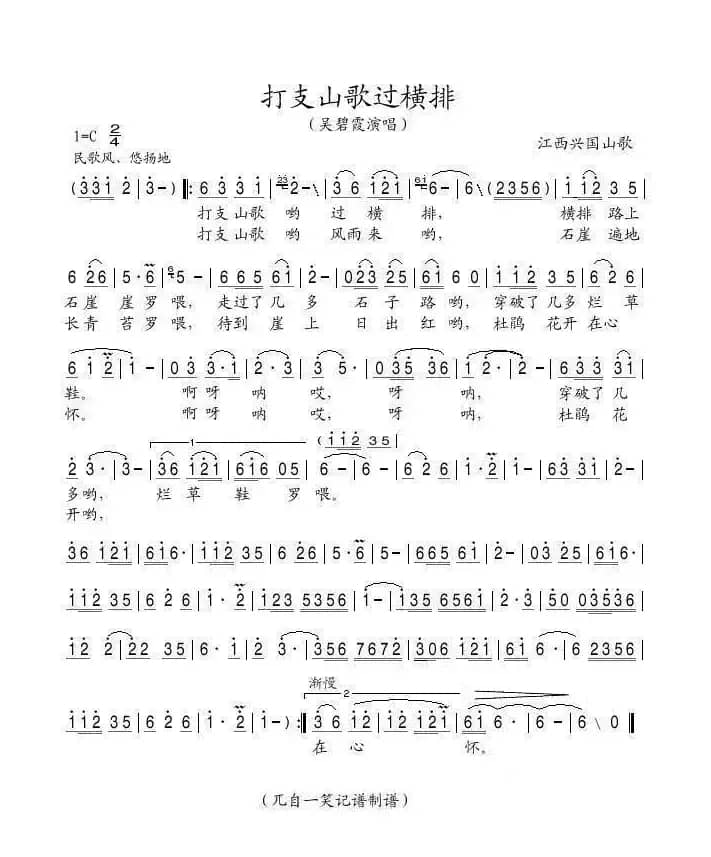 打支山歌过横排
（吴碧霞演唱）
1=C 2/4
民歌风、悠扬地
江西兴国山歌
(3 3 1 2 | 3 - ) ‖: 6 3 3 1 | 2 - \ | 3 6 1 2 1 | 6 - | 6 - \ | (2 3 5 6) | 1 1 2 3 5 |
打支山歌 哟 过 横 排， 横排 路上
打支山歌 哟 风雨来 哟， 石崖 遍地
6 2 6 | 5 · 6 | 5 - | 6 6 5 6 1 | 2 - | 0 2 3 2 5 | 6 1 6 0 | 1 1 2 3 5 | 6 2 6 |
石崖 崖罗喂， 走过了几多 石子 路哟， 穿破了几多烂草
长青 苔罗喂， 待到 崖上 日出 红哟， 杜鹃 花开在心
6 1 2 | 1 - | 0 3 3 · 1 | 2 · 3 | 3 5 · | 0 3 5 3 6 | 1 2 · | 2 - | 6 3 3 3 1 |
鞋。 啊呀 呐 哎， 呀 呐， 穿破了几
怀。 啊呀 呐 哎， 呀 呐， 杜鹃 花
1 (1 1 2 3 5
2 3 · | 3 - | 3 6 1 2 1 | 6 1 6 0 5 | 6 - | 6 - | 6 2 6 | 1 · 2 | 1 - | 6 3 3 3 1 | 2 - |
多哟， 烂草 鞋罗 喂。
开哟，
3 6 1 2 1 | 6 1 6 · | 1 1 2 3 5 | 6 2 6 | 5 · 6 | 5 - | 6 6 5 6 1 | 2 - | 0 2 3 2 5 | 6 1 6 · |
1 1 2 3 5 | 6 2 6 | 1 · 2 | 1 2 3 5 3 5 6 | 1 - | 1 3 5 6 5 6 1 | 2 · 3 | 5 0 0 3 5 3 6 |
1 2 2 | 2 2 3 5 | 6 · 1 | 2 · 3 | 3 5 6 7 6 7 2 | 3 0 6 1 2 1 | 6 1 6 · | 6 2 3 5 6 |
渐慢
2
1 1 2 3 5 | 6 2 6 | 1 · 2 | 1 - ) :‖ 3 6 1 2 | 1 2 1 2 1 | 6 1 6 · | 6 - | 6 \ 0 ‖
在 心 怀。
（兀自一笑记谱制谱）